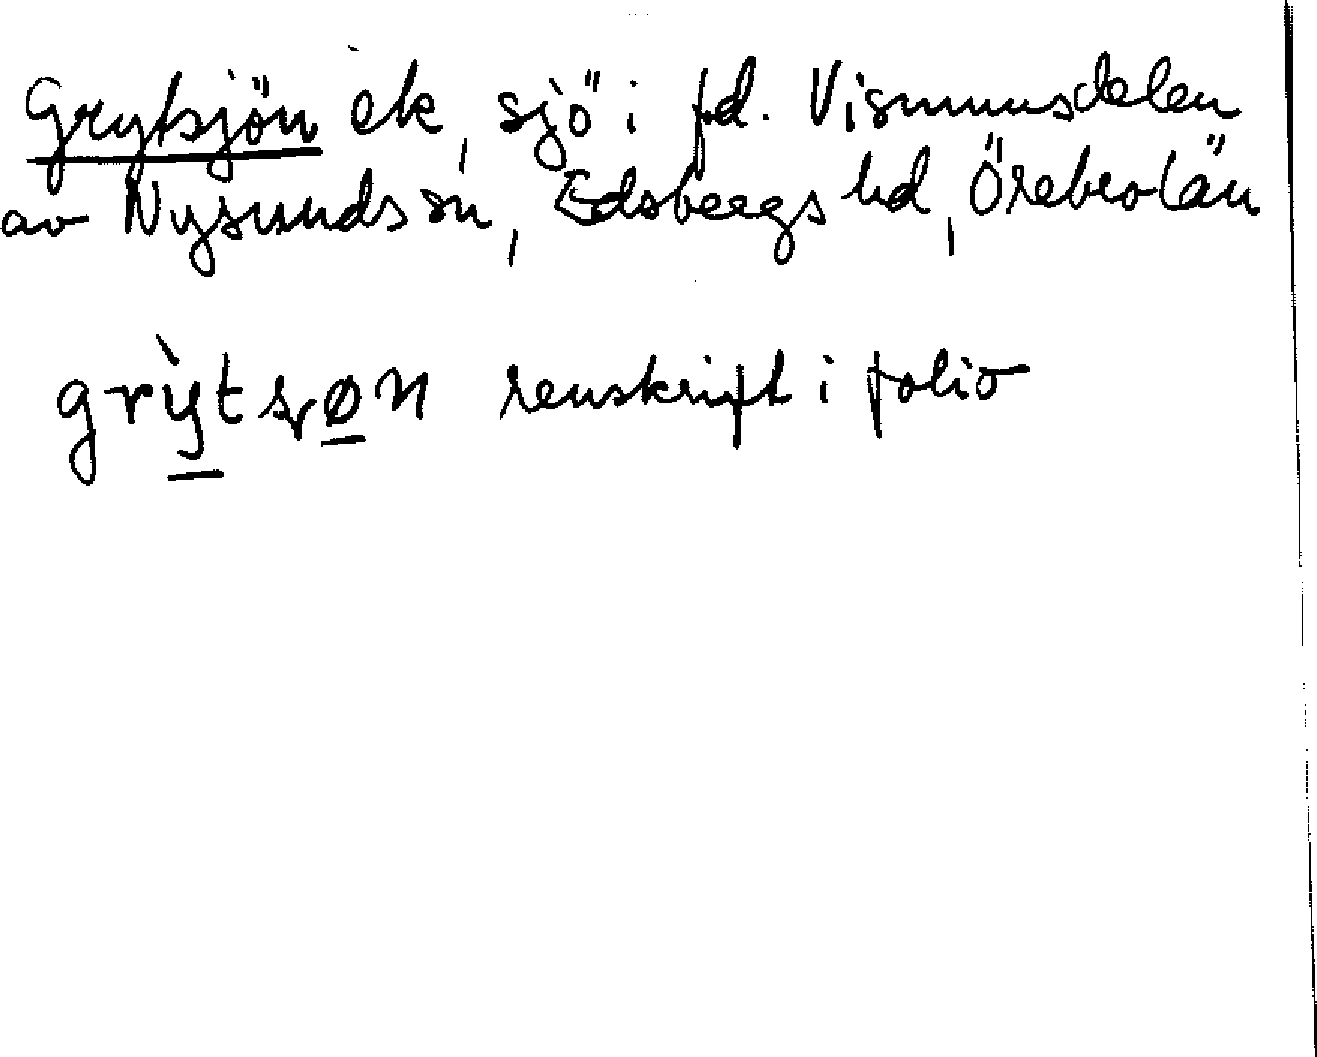 Grytsjön ek, sjö i f.d. Vismunsdelen
av Nysunds sn, Edsbergs hd, Örebro län
grỳtsøn renskrift i folio